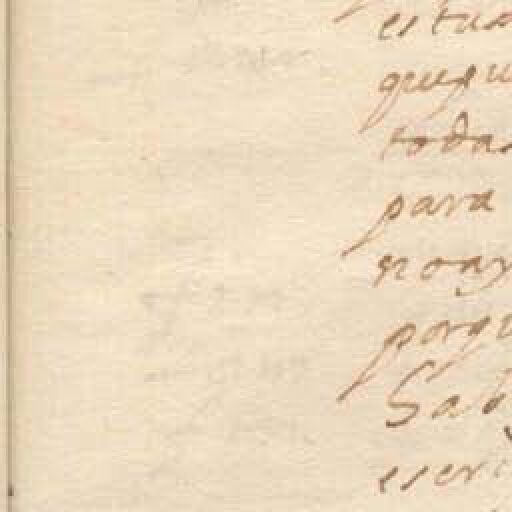 estua
quepu
todas
para
noay
porqu
Sab
escri